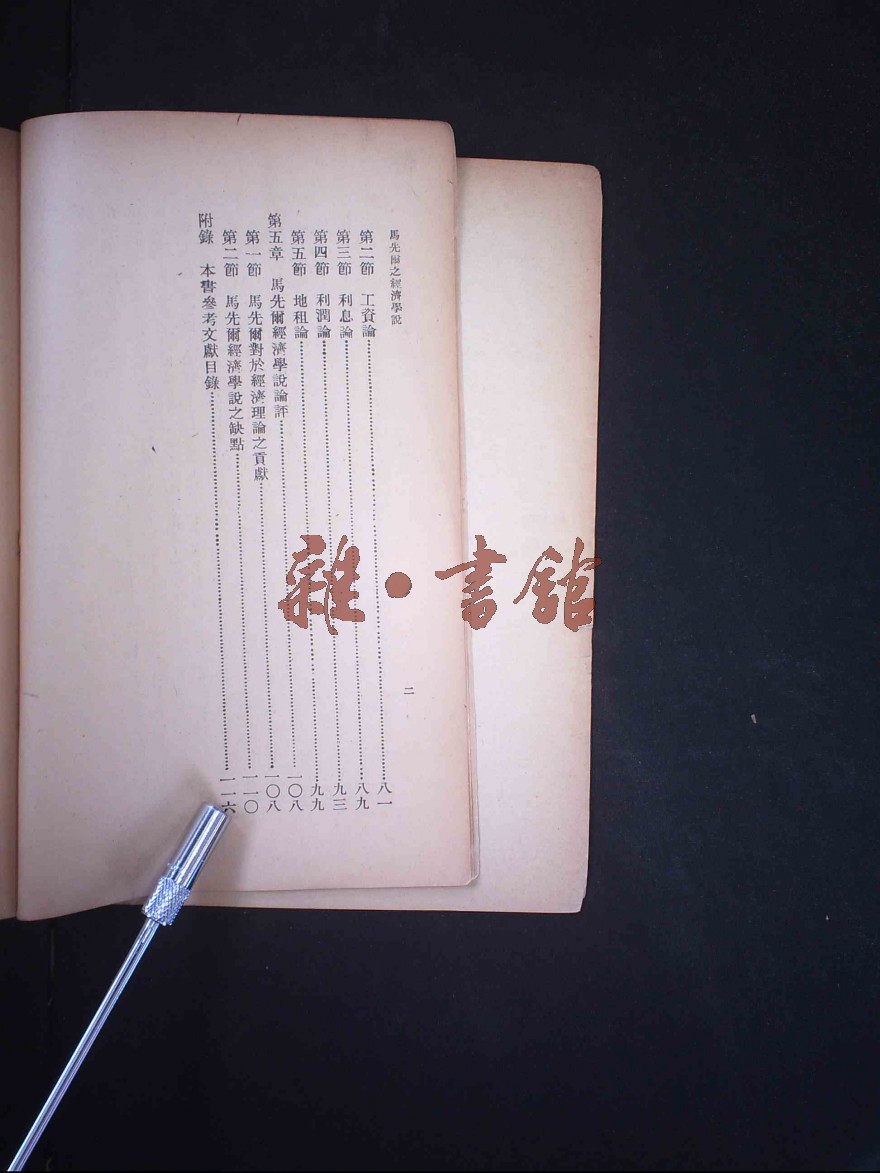 馬先爾之經濟學說
二
第二節　工資論……八一
第三節　利息論……八九
第四節　利潤論……九三
第五節　地租論……九九
第五章　馬先爾經濟學說論評……一〇八
第一節　馬先爾對於經濟理論之貢獻……一〇八
第二節　馬先爾經濟學說之缺點……一一〇
附錄　本書參考文獻目錄……一一六
雜·書館